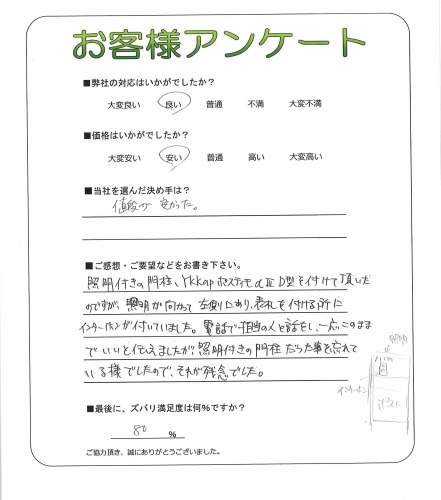 お客様アンケート
■弊社の対応はいかがでしたか?
大変良い 良い 普通 不満 大変不満
■価格はいかがでしたか?
大変安い 安い 普通 高い 大変高い
■当社を選んだ決め手は?
値段が安かった。
■ご感想・ご要望などをお書き下さい。
照明付きの門柱、Ykkap ポスティモαⅡ D型を付けて頂いた
のですが、照明が向かって左側にあり、表札を付ける所に
インターホンが付いていました。電話で担当の人と話をし、一応このまま
でいいと伝えましたが、照明付きの門柱だった事を忘れて
いる様でしたので、それが残念でした。
照明
インターホン
ポスト
■最後に、ズバリ満足度は何%ですか?
80 %
ご協力頂き、誠にありがとうございました。